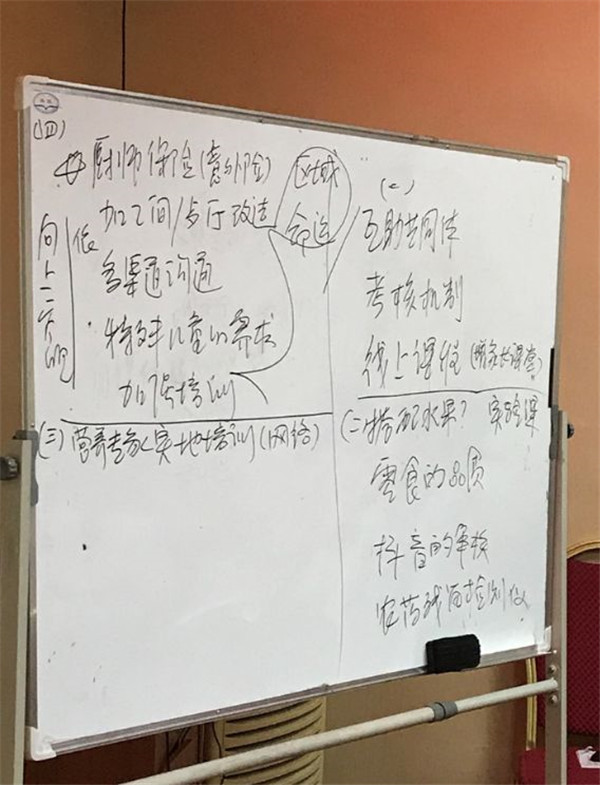 (四)
厨师保险(意外险)
加工间/餐厅改造
多渠道沟通
特殊儿童的需求
加强培训
区域
命运
(三)营养专家实地培训(网络)
(一)
互助共同体
考核机制
线上课程(课堂)
(二)搭配水果? 实验课
零食的品质
抖音的审核
农药残留检测仪